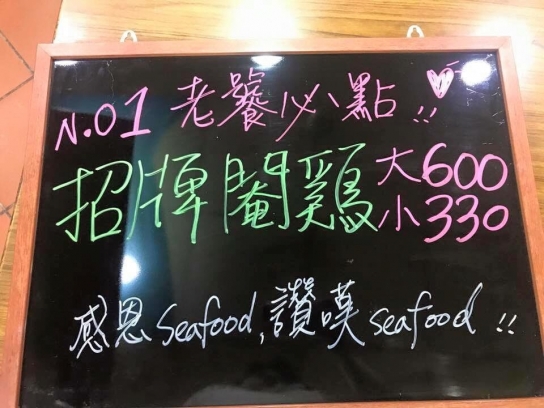 N.01 老饕必點!!
招牌閹鷄 大600
小330
感恩Seafood,讚嘆seafood!!